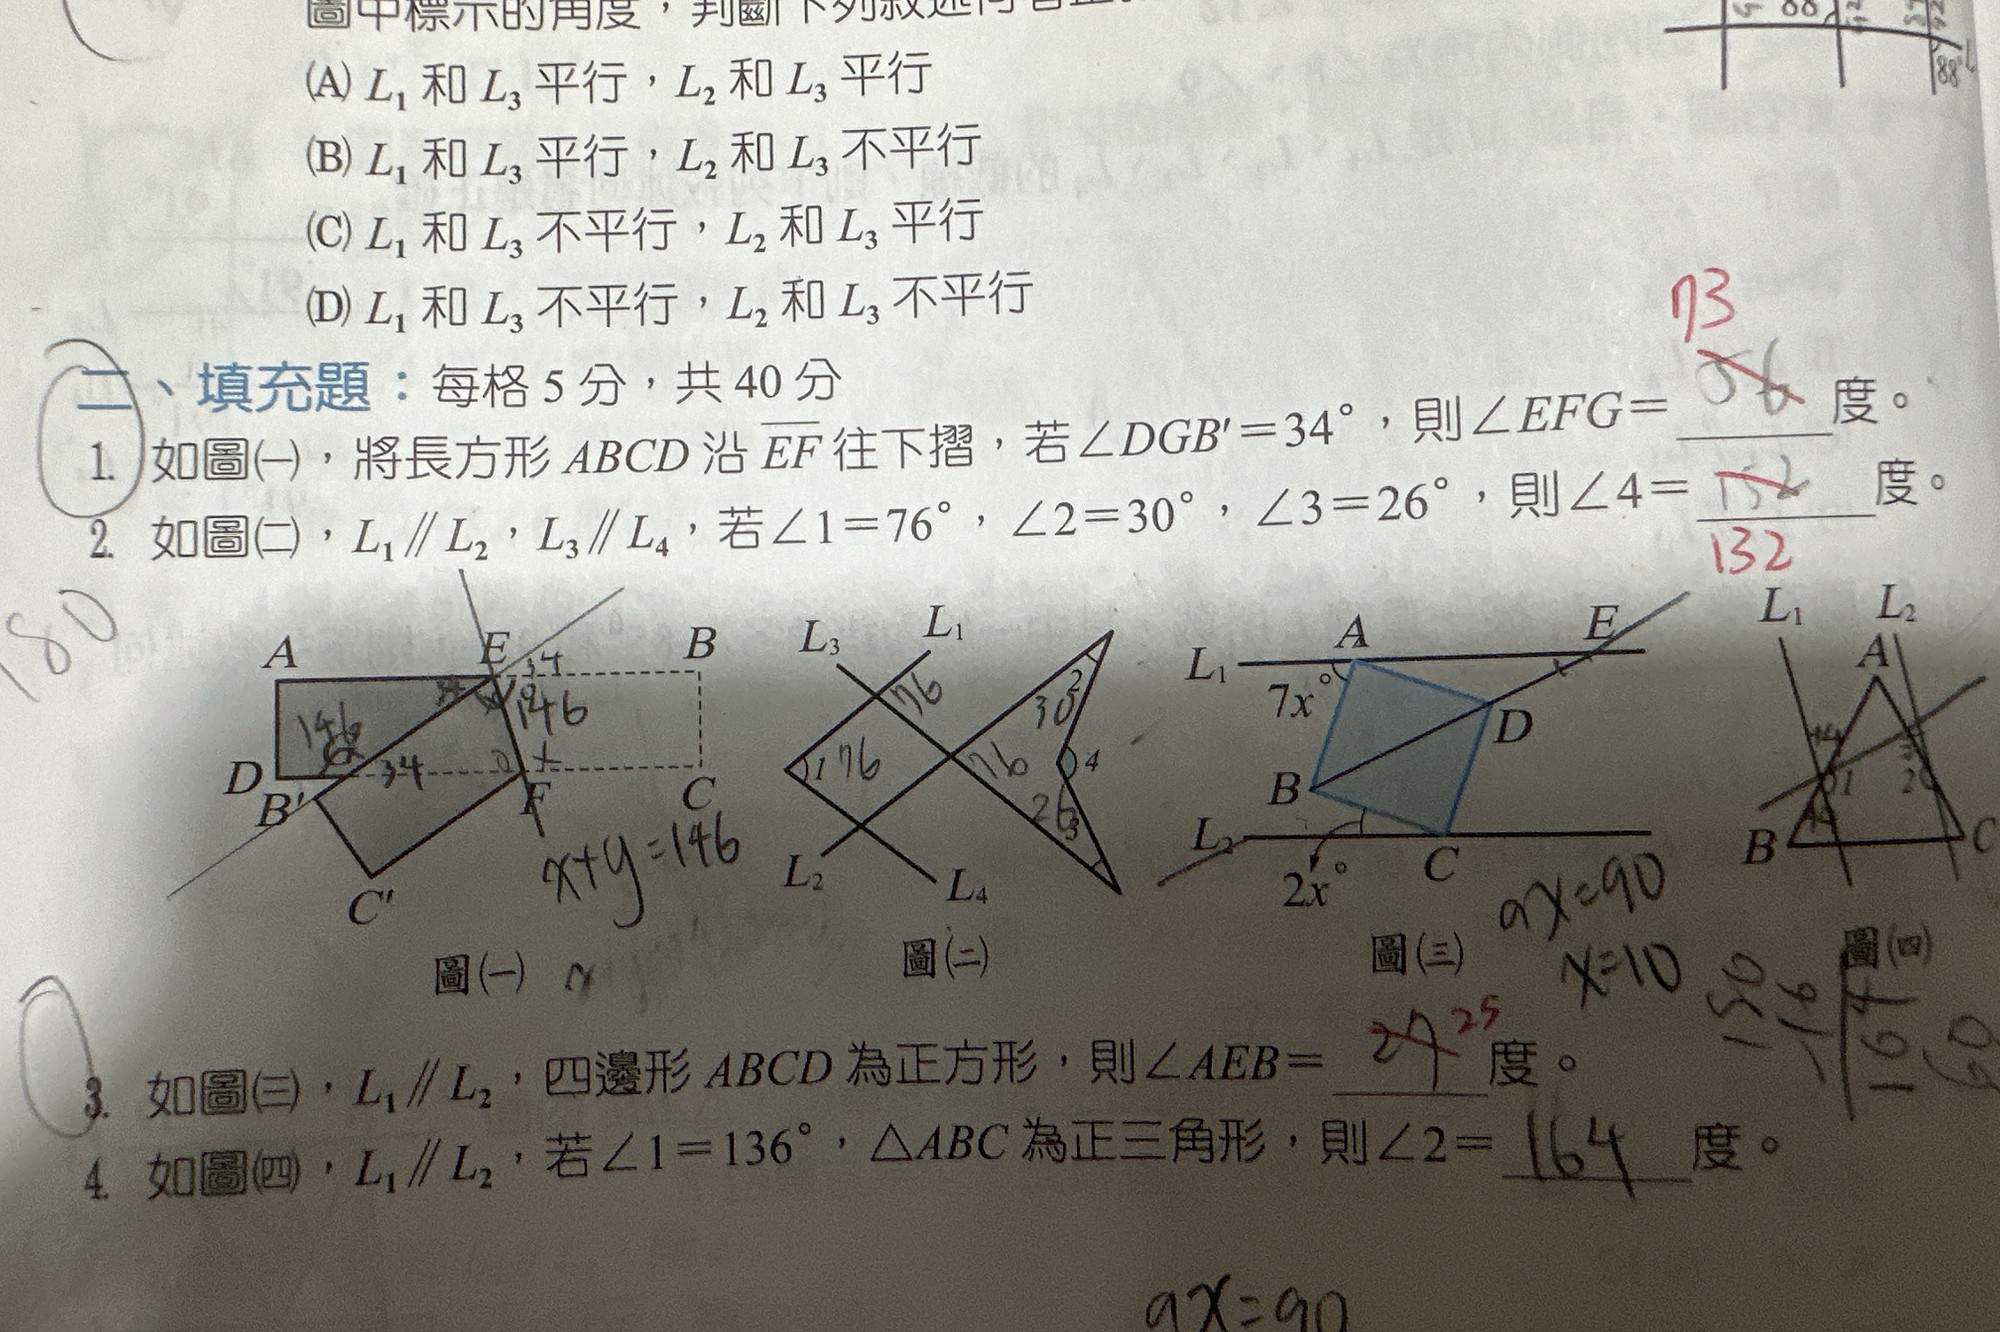 圖中標示的角度，判斷下列敘述何者正
(A) L₁ 和 L₃ 平行，L₂ 和 L₃ 平行
(B) L₁ 和 L₃ 平行，L₂ 和 L₃ 不平行
(C) L₁ 和 L₃ 不平行，L₂ 和 L₃ 平行
(D) L₁ 和 L₃ 不平行，L₂ 和 L₃ 不平行
73
二、填充題：每格 5 分，共 40 分
1. 如圖㈠，將長方形 ABCD 沿 EF 往下摺，若∠DGB'=34°，則∠EFG= 56 度。
2. 如圖㈡，L₁∥L₂，L₃∥L₄，若∠1=76°，∠2=30°，∠3=26°，則∠4= 132 度。
132
180
A E 34 B
146 34 146
D B' 34 F C
C'
x+y=146
圖㈠
L₃ L₁
76
1 76 76 30 2 4
26 3
L₂ L₄
圖㈡
L₁ A E
7x°
B D
L₂ C
2x°
9x=90
x=10
圖㈢
L₁ L₂
A
1 2
B C
圖㈣
3. 如圖㈢，L₁∥L₂，四邊形 ABCD 為正方形，則∠AEB= 25 度。
4. 如圖㈣，L₁∥L₂，若∠1=136°，△ABC 為正三角形，則∠2= 164 度。
9x=90